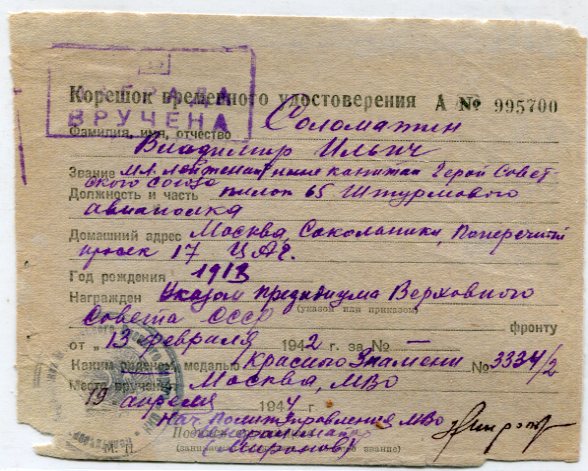 НАГРАДА
ВРУЧЕНА
Корешок временного удостоверения А № 995700
Фамилия, имя, отчество Соломатин
Владимир Ильич
Звание мл. лейтенант ныне капитан Герой Совет-
ского Союза
Должность и часть пилот 65 Штурмового
авиаполка
Домашний адрес Москва, Сокольники, Поперечный
просек 17
Год рождения 1913
Награжден Указом Президиума Верховного
(указом или приказом)
Совета СССР
фронту
от "13" февраля 1942 г. за № —
Каким орденом, медалью Красного Знамени № 3334/2
Место вручения Москва, МВО
19 апреля 1944 г.
Нач Политуправления МВО
генерал-майор
(Миронов)
М. П.